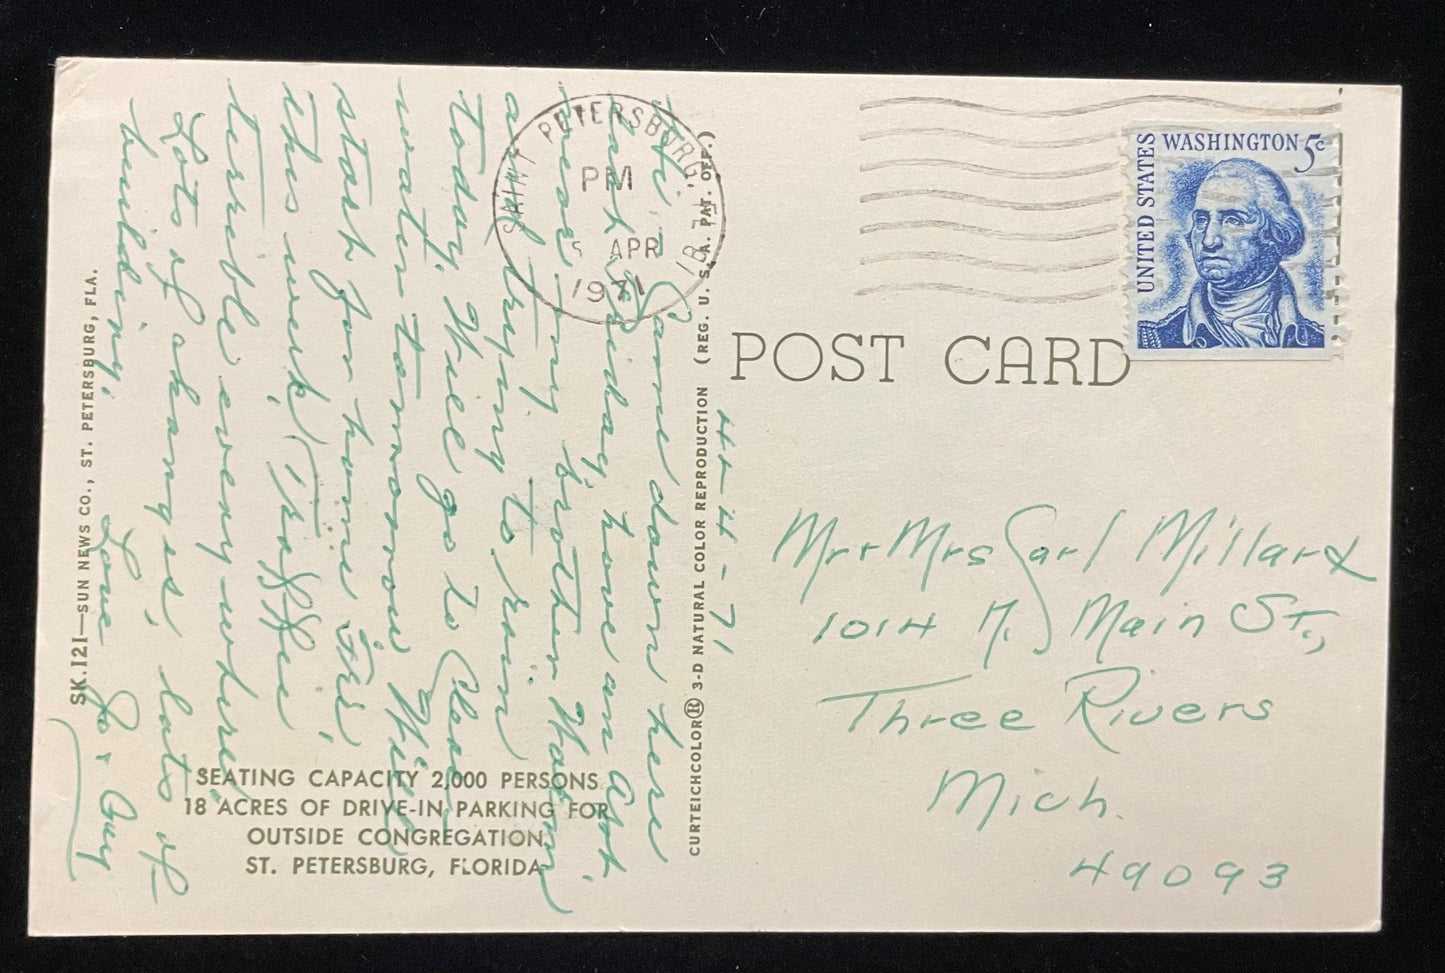 SAINT PETERSBURG,
PM
5 APR
1971
UNITED STATES
WASHINGTON 5c
POST CARD
4-4-71
Hi! Came down here
last Friday, have an apt.
near my brother Watson
and trying to rain
today. Will go to Clear-
water tomorrow. Will
start for home Fri.
this week. Traffic
terrible everywhere.
Lots of changes, lots of
building.
Love Jo & Guy
Mr + Mrs Carl Millard
1014 N. Main St.,
Three Rivers
Mich.
49093
SEATING CAPACITY 2,000 PERSONS
18 ACRES OF DRIVE-IN PARKING FOR
OUTSIDE CONGREGATION.
ST. PETERSBURG, FLORIDA
SK.121—SUN NEWS CO., ST. PETERSBURG, FLA.
CURTEICHCOLOR® 3-D NATURAL COLOR REPRODUCTION (REG. U. S. A. PAT. OFF.)